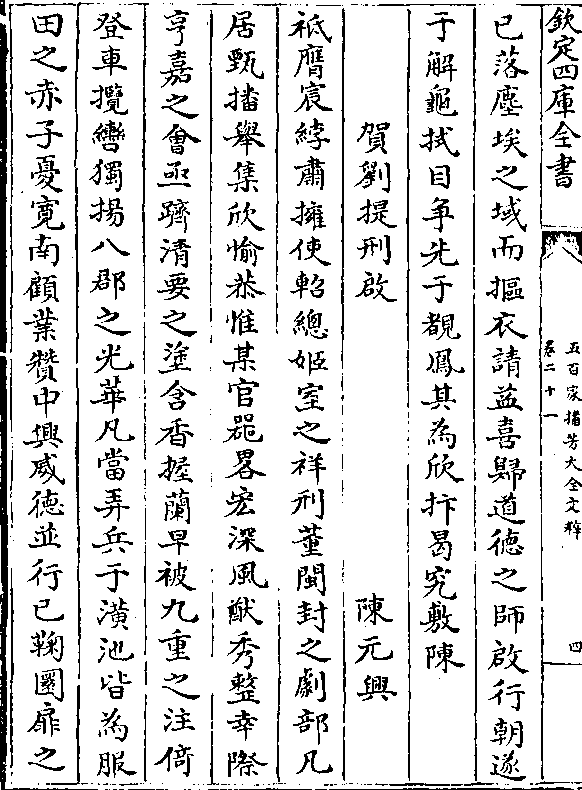 欽定四庫全書
五百家播芳大全文粹
卷二十一
四
已落塵埃之域而摳衣請益喜歸道德之師啟行朝遂
于解龜拭目爭先于覩鳳其為欣抃曷究敷陳
賀劉提刑啟
陳元興
祗膺宸綍肅擁使軺總姬室之祥刑董閩封之劇部凡
居甄播舉集欣愉恭惟某官器畧宏深風猷秀整幸際
亨嘉之會亟躋清要之塗含香握蘭早被九重之注倚
登車攬轡獨揚八郡之光華凡當弄兵于潢池皆為服
田之赤子憂寛南顧業贊中興威德並行已鞠圜扉之